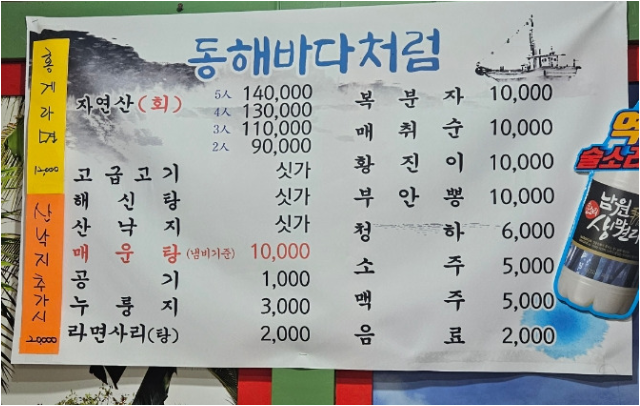 동해바다처럼
홍게라면
12,000
산낙지추가시
20,000
자연산(회) 5人 140,000
4人 130,000
3人 110,000
2人 90,000
고급고기 싯가
해신탕 싯가
산낙지 싯가
매운탕(냄비기준) 10,000
공기 1,000
누룽지 3,000
라면사리(탕) 2,000
복분자 10,000
매취순 10,000
황진이 10,000
부안뽕 10,000
청하 6,000
소주 5,000
맥주 5,000
음료 2,000
술소리
남원
생막걸리